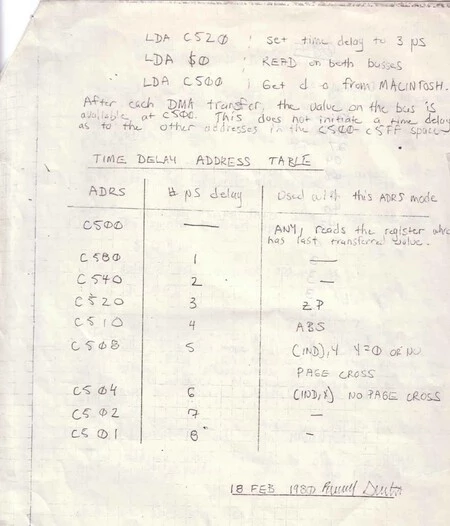 LDA C520 ; set time delay to 3 µs
LDA $0 ; READ on both busses
LDA C500 ; Get d a from MACINTOSH.
After each DMA transfer, the value on the bus is
available at C500. This does not initiate a time delay
as to the other addresses in the C500-C5FF space
TIME DELAY ADDRESS TABLE
ADRS # µs delay Used with this ADRS mode
C500 — ANY, reads the register
has last transferred value.
C580 1 —
C540 2 —
C520 3 ZP
C510 4 ABS
C508 5 (IND),Y Y=0 OR NO
PAGE CROSS
C504 6 (IND,X) NO PAGE CROSS
C502 7 —
C501 8 –
18 FEB 1987